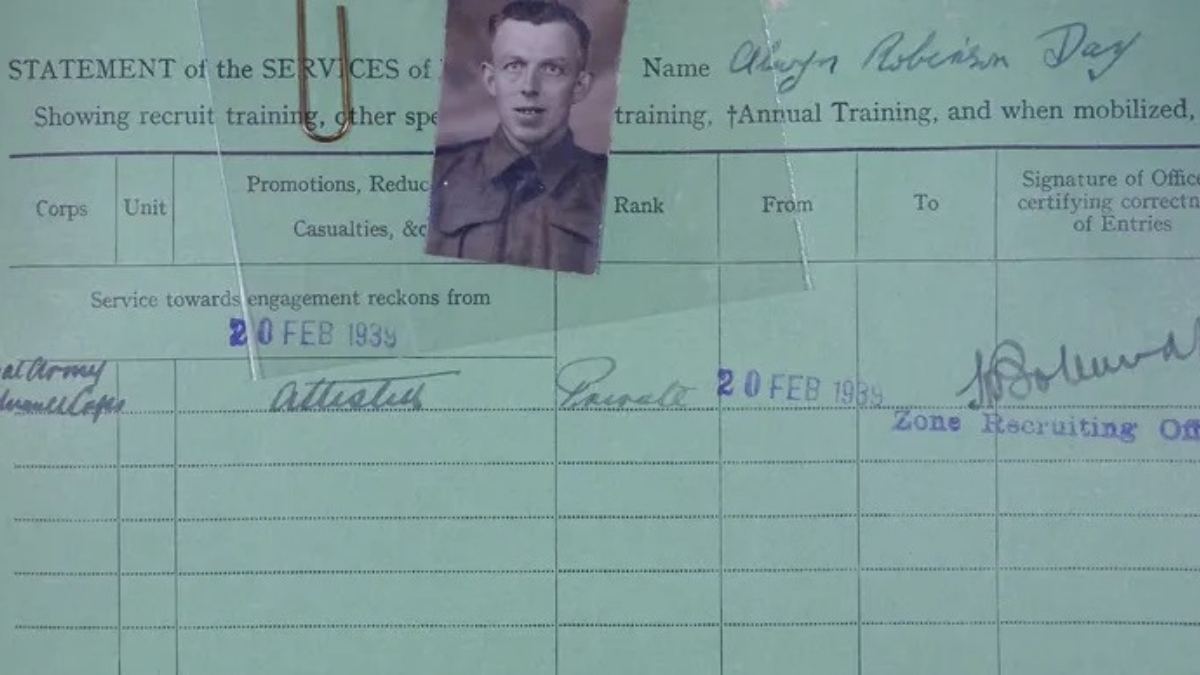 STATEMENT of the SERVICES of Name Alwyn Robinson Day
Showing recruit training, other spe training, †Annual Training, and when mobilized,
Corps Unit Promotions, Reduc Casualties, &c Rank From To Signature of Office certifying correctn of Entries
Service towards engagement reckons from
20 FEB 1939
al Army
Attested Private 20 FEB 1939
Zone Recruiting Off